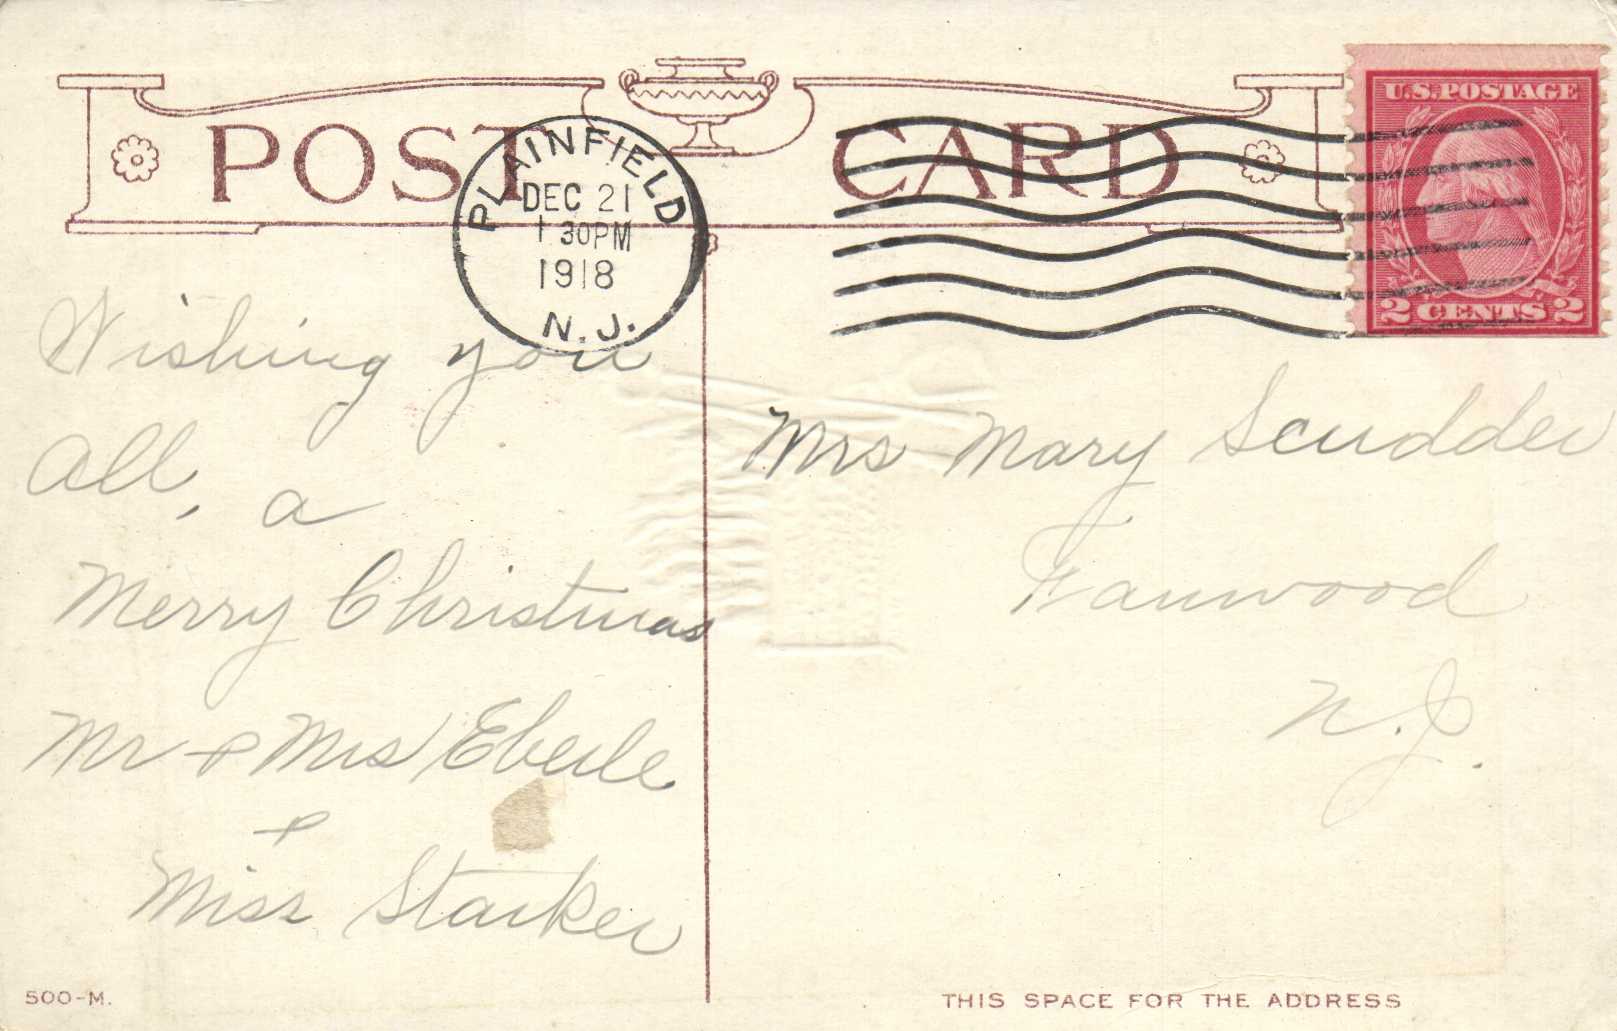 POST CARD
PLAINFIELD
DEC 21
1 30PM
1918
N.J.
U.S. POSTAGE
2 CENTS 2
Wishing you
All, a
Merry Christmas
Mr & Mrs Eberle
&
Miss Starker
Mrs Mary Scudder
Fanwood
N.J.
500-M.
THIS SPACE FOR THE ADDRESS